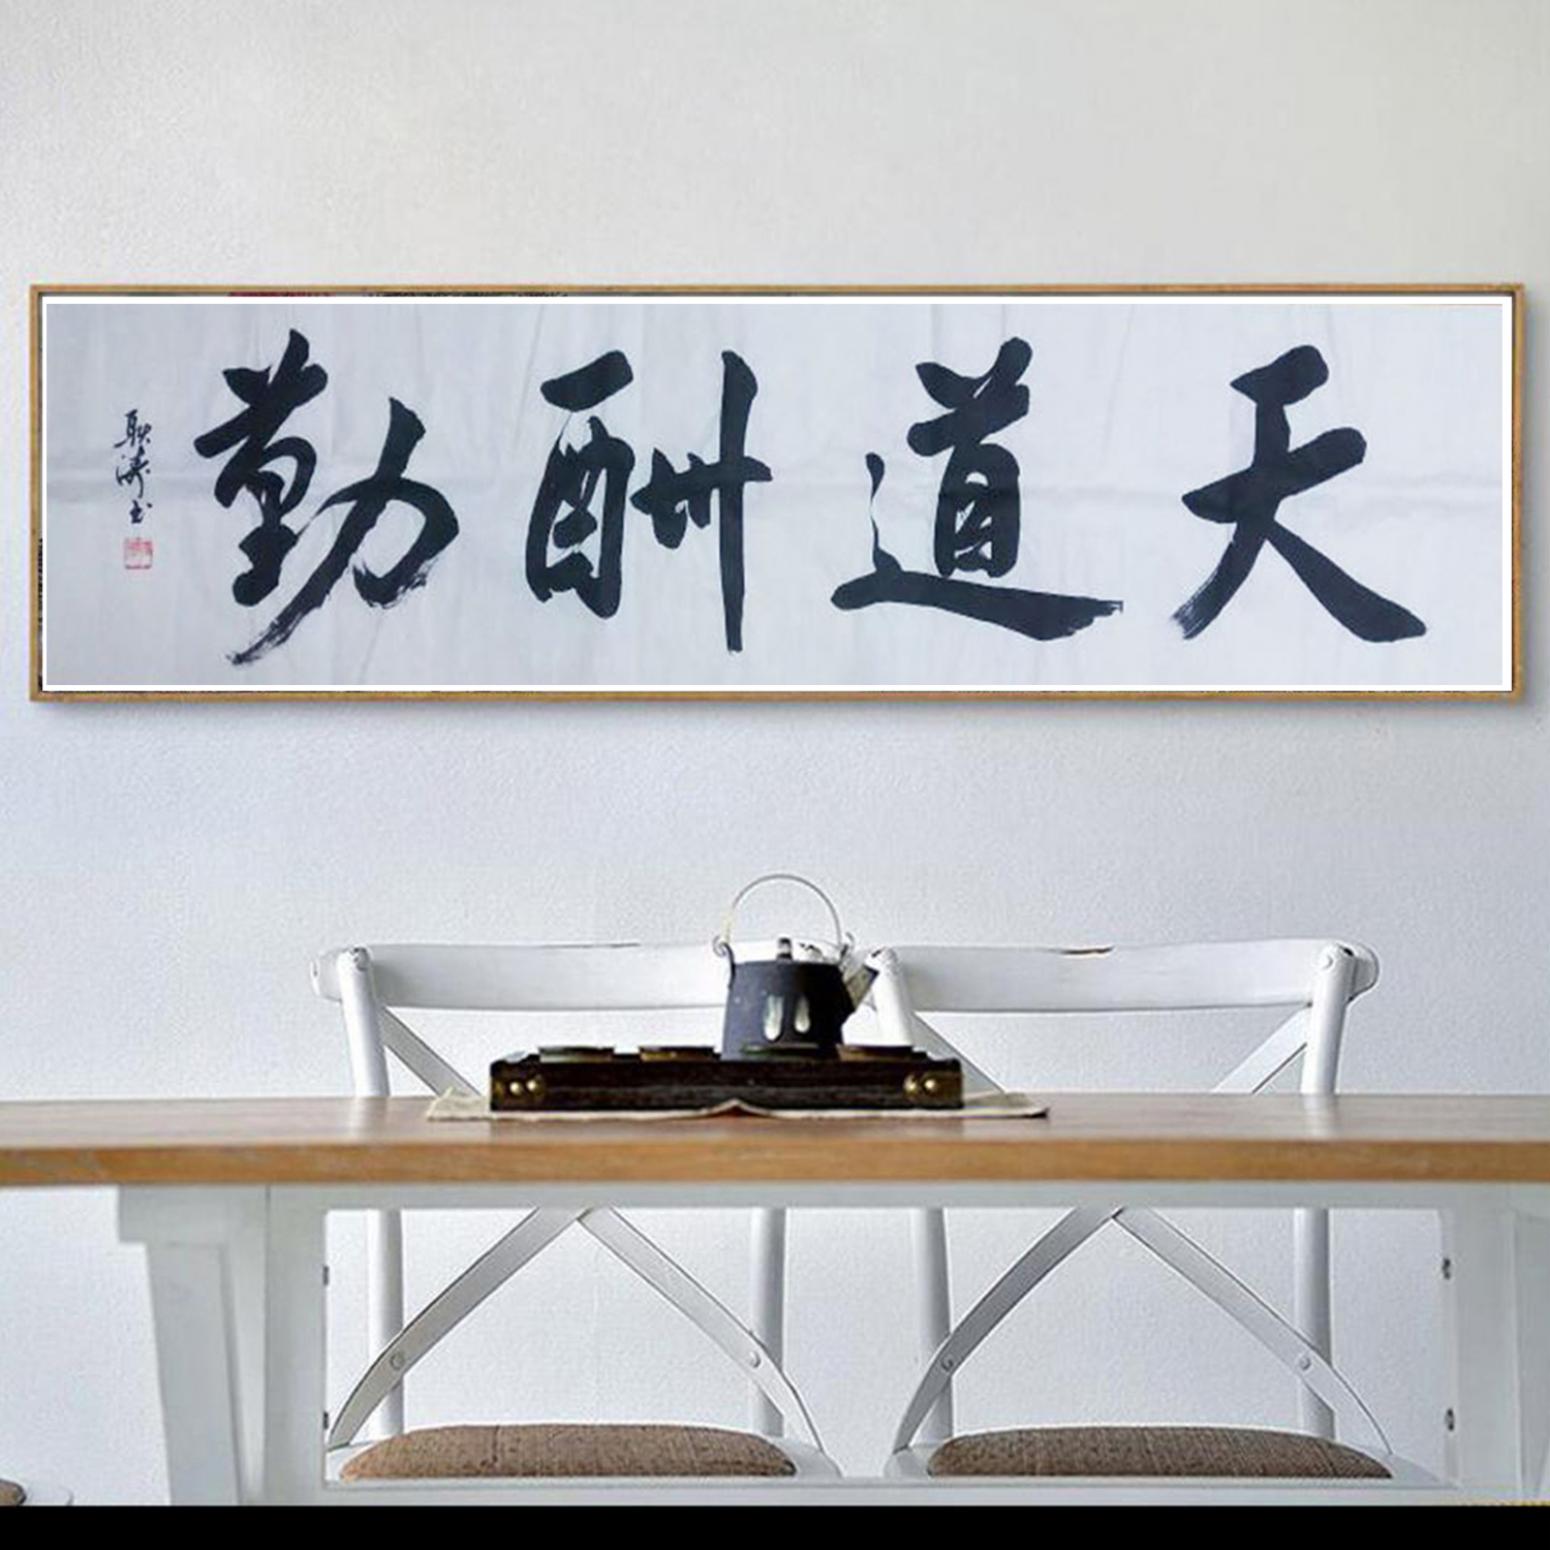 天道酬勤
耿涛书